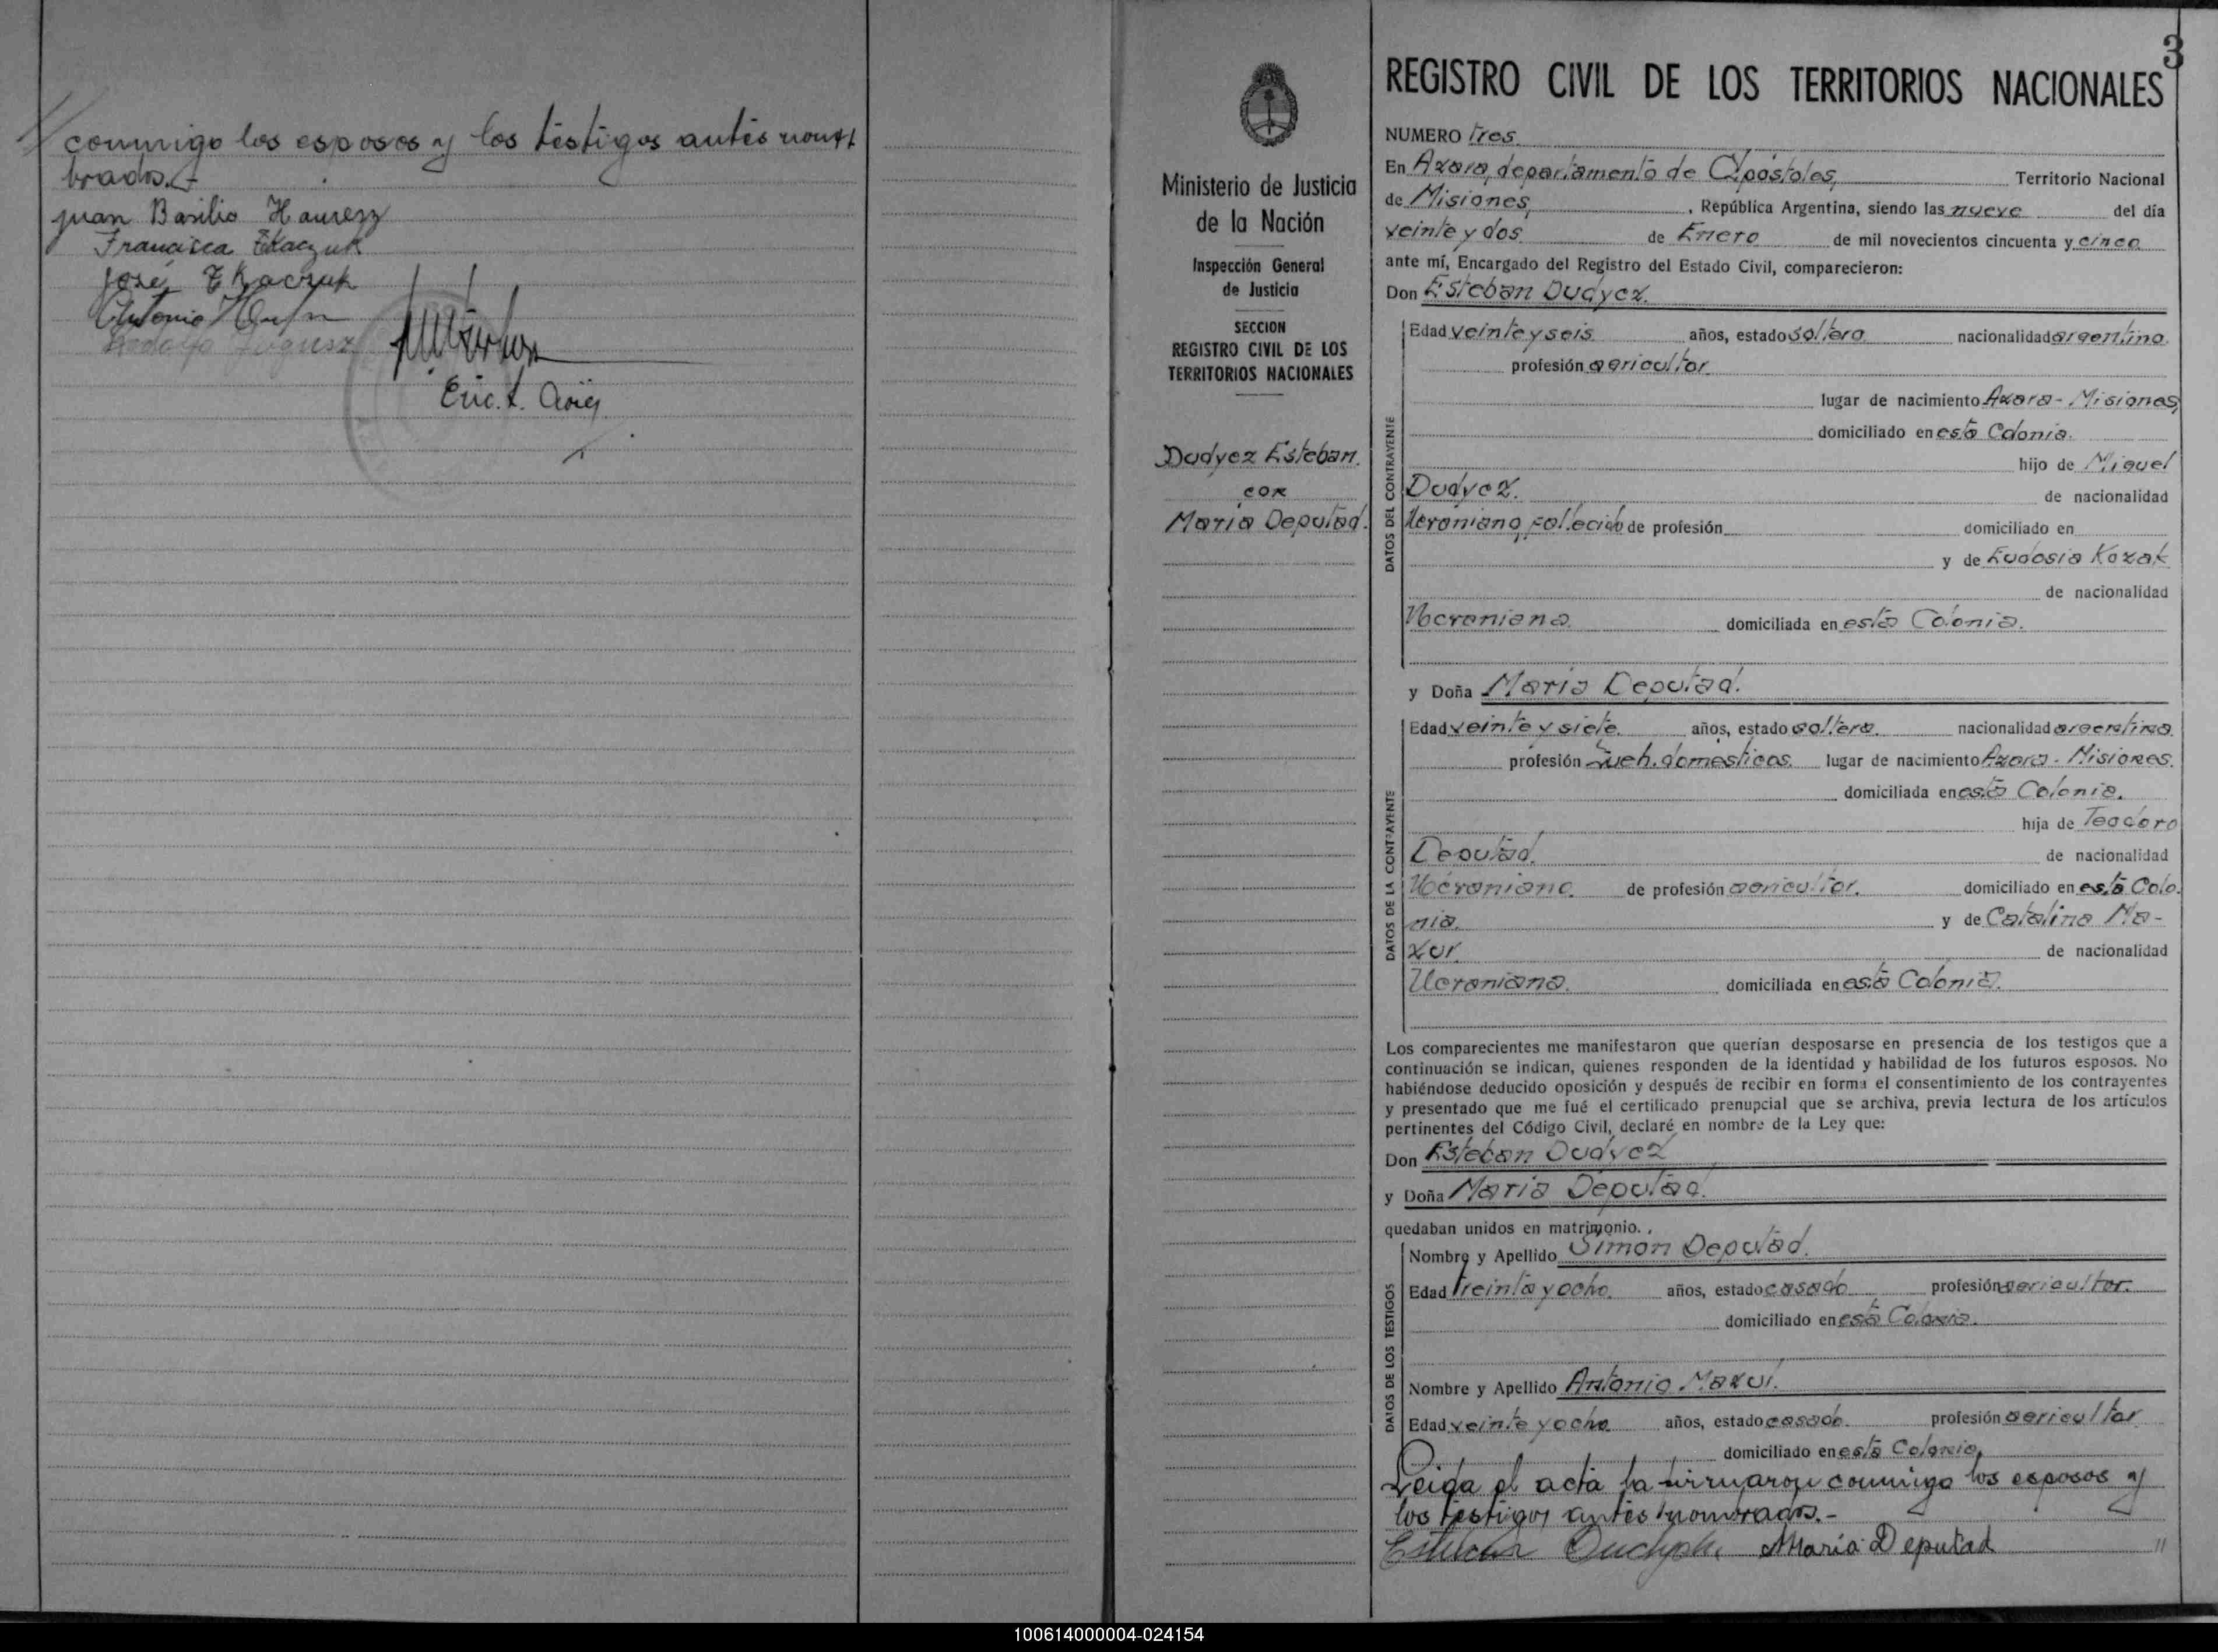 // conmigo los esposos y los testigos antes nom-
brados.-
Juan Basilio Hauresz
Francisca Tkaczuk
José Tkaczuk
Antonio
Rodolfo
Enc.
3
REGISTRO CIVIL DE LOS TERRITORIOS NACIONALES
Ministerio de Justicia
de la Nación
Inspección General
de Justicia
SECCION
REGISTRO CIVIL DE LOS
TERRITORIOS NACIONALES
Dudyez Esteban.
con
María Deputad.
NUMERO tres.
En Azara, departamento de Apóstoles, Territorio Nacional
de Misiones, , República Argentina, siendo las nueve del día
veinte y dos de Enero de mil novecientos cincuenta y cinco
ante mí, Encargado del Registro del Estado Civil, comparecieron:
Don Esteban Dudycz.
DATOS DEL CONTRAYENTE
Edad veinte y seis años, estado soltero nacionalidad argentino.
profesión agricultor
lugar de nacimiento Azara - Misiones,
domiciliado en esta Colonia.
hijo de Miguel
Dudycz. de nacionalidad
Ucraniano, fallecido de profesión domiciliado en
y de Eudosia Kozak
de nacionalidad
Ucraniana. domiciliada en esta Colonia.
y Doña María Deputad.
DATOS DE LA CONTRAYENTE
Edad veinte y siete. años, estado soltera. nacionalidad argentina.
profesión Queh. domesticos. lugar de nacimiento Azara - Misiones.
domiciliada en esta Colonia.
hija de Teodoro
Deputad. de nacionalidad
Ucraniano. de profesión agricultor. domiciliado en esta Colo.
nia. y de Catalina Ma-
zur. de nacionalidad
Ucraniana. domiciliada en esta Colonia.
Los comparecientes me manifestaron que querían desposarse en presencia de los testigos que a
continuación se indican, quienes responden de la identidad y habilidad de los futuros esposos. No
habiéndose deducido oposición y después de recibir en forma el consentimiento de los contrayentes
y presentado que me fué el certificado prenupcial que se archiva, previa lectura de los artículos
pertinentes del Código Civil, declaré en nombre de la Ley que:
Don Esteban Dudycz
y Doña María Deputad.
quedaban unidos en matrimonio.
DATOS DE LOS TESTIGOS
Nombre y Apellido Simon Deputad.
Edad treinta y ocho. años, estado casado profesión agricultor.
domiciliado en esta Colonia.
Nombre y Apellido Antonio Mazur.
Edad veinte y ocho años, estado casado. profesión agricultor
domiciliado en esta Colonia,
Leida el acta la firmaron conmigo los esposos y
los testigos antes nombrados.-
Esteban María Deputad //
100614000004-024154